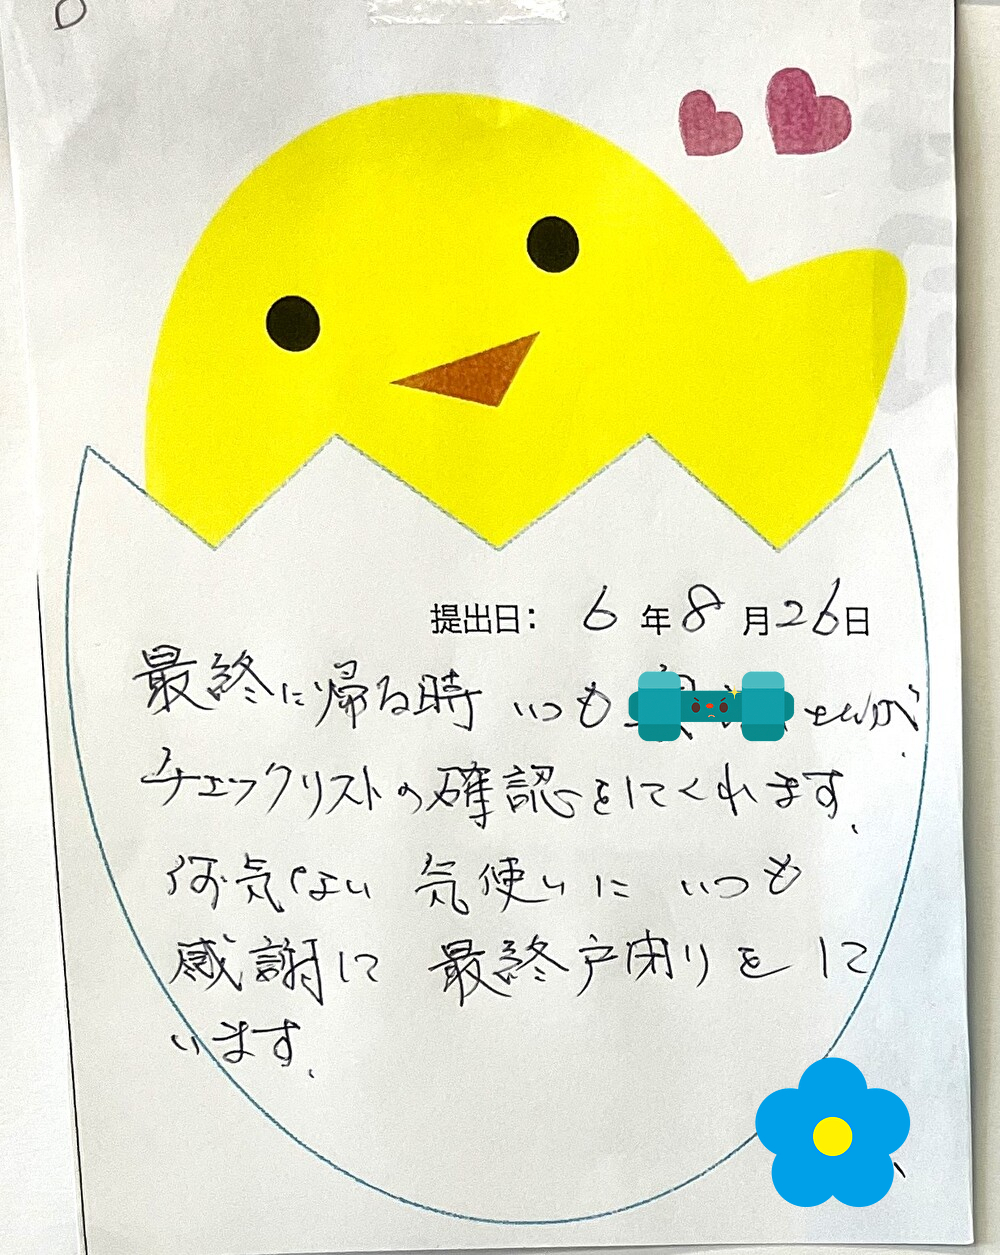 提出日: 6年8月26日
最終に帰る時 いつも さんが
チェックリストの確認をしてくれます.
何気ない 気使いに いつも
感謝して 最終戸閉りをして
います.